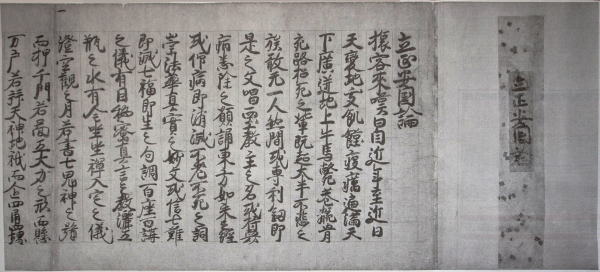 立正安国論
立正安国論
旅客來嘆曰自近年至近日
天變地夭飢饉疫癘遍滿天
下廣迸地上牛馬斃巷骸骨
充路招死之輩既超大半不悲之
族敢无一人然間或專利釼即
是之文唱西土教主之名或持衆
病悉除之願誦東方如來之經
或仰病即消滅不老不死之詞
崇法華真實之妙文或信七難
即滅七福即生之句調百座百講
之儀有因秘密真言之教灑五
瓶之水有全坐禪入定之儀
澄空觀之月若書七鬼神之號
而押千門若圖五大力之形而懸
万戸若拜天神地祇而企四角四堺